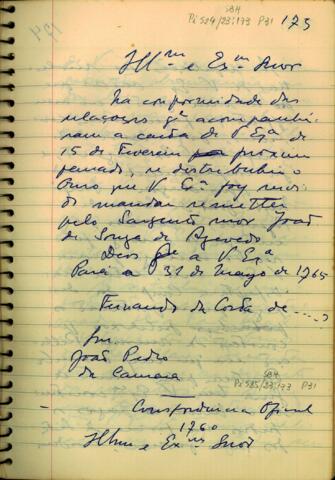 SBH
Pi 524/23;173 P31
175
Illmo e Exmo Snor
Na conformidade das
relaçoens q̃ acompanhá-
ram a carta de V Exª de
15 de Fevereiro proximo
passado, se distribuhio o
que V Exª foy servi-
do mandar remetter
pelo Sargento mor João
de Souza de Azevedo
Deos gde a V Exª
Pará a 31 de Março de 1765
Fernando da Costa de ....
Snr.
João Pedro
da Camara
SBH
Pi 525/23;173 P31
Correspondencia Oficial
1760
Illmo e Exmo Snor